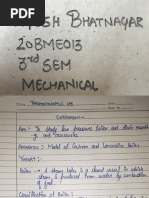 SH BHATNAGAR
20BME013
3rd SEM
MECHANICAL
THERMODYNAMICS LAB
EXPERIMENT
Aim:- To Study low pressure boiler and their mounting
and accessories
Apparatus:- Model of Cochran and Lancashire Boiler.
THEORY:-
Boiler → A steam boiler is a closed vessel in which
steam is produced from water by combustion
of fuel.
Classification of Boiler:-